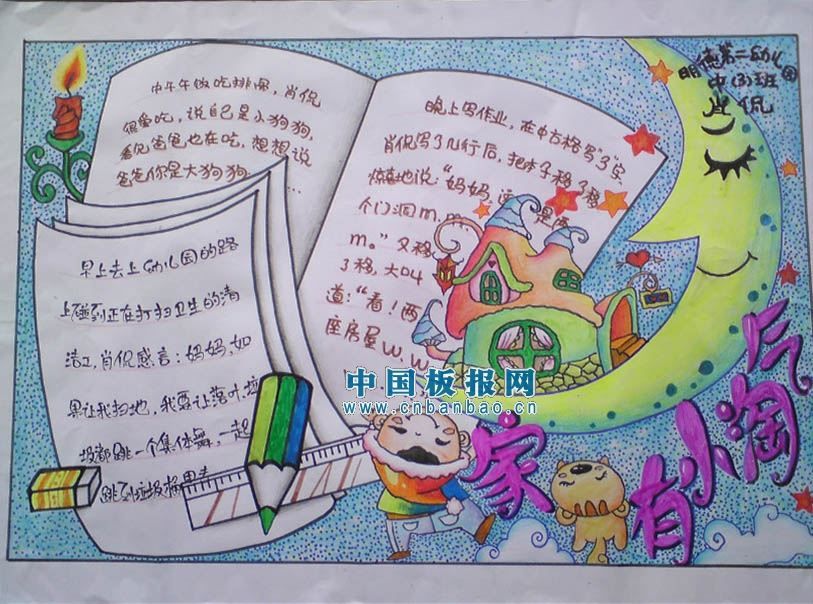 中午午做吃排深，肖侃
很爱吃，说自己是小狗狗，
看见爸爸也在吃，想想说
爸爸你是大狗狗……
晚上写作业，在中方格写"3"字
肖侃写了几行后，把本子移了移
惊喜地说："妈妈，这
个门洞m.m.
m。"又移
了移，大叫
道："看！两
座房屋w.w.
早上去上幼儿园的路
上碰到正在打扫卫生的清
洁工，肖侃感言：妈妈，如
果让我扫地，我要让落叶垃
圾都跳一个集体舞，一起
跳到垃圾桶里去
明德第二幼儿园
中(3)班
肖侃
家有小淘气
中国板报网
www.cnbanbao.cn